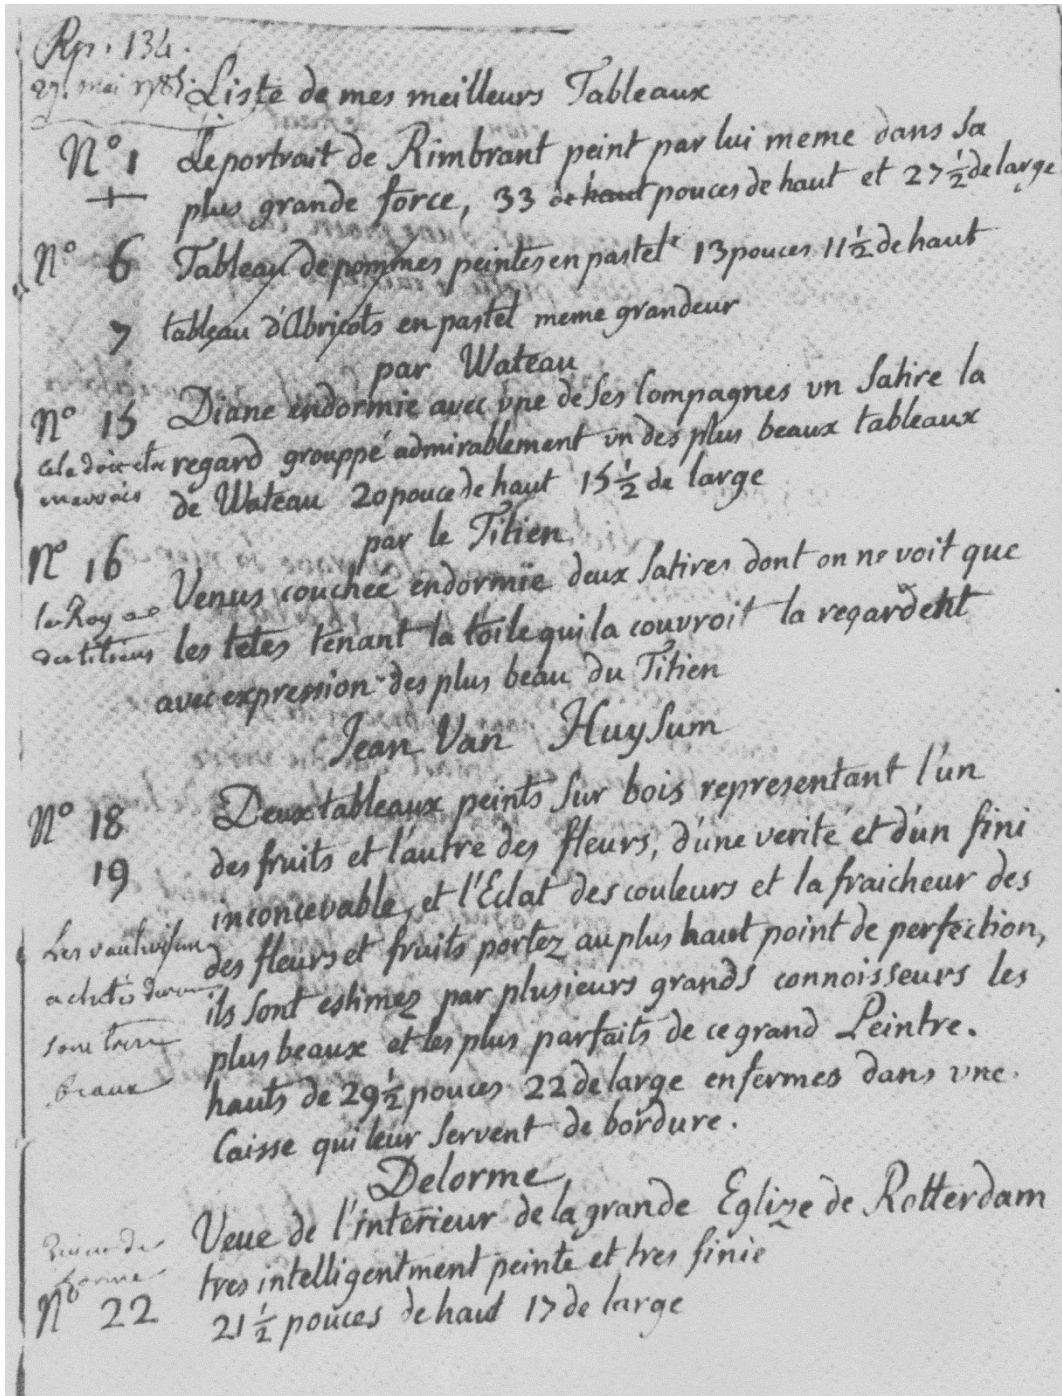 Rp. 134.
27. mai 1785.
Liste de mes meilleurs Tableaux
N° 1 Le portrait de Rimbrant peint par lui meme dans sa
plus grande force, 33 de haut pouces de haut et 27 1/2 de large
N° 6 Tableau de pommes peintes en pastel 13 pouces 11 1/2 de haut
7 tableau d'Abricots en pastel meme grandeur
par Wateau
N° 15 Diane endormie avec une de ses Compagnes un Satire la
regard grouppé admirablement un des plus beaux tableaux
de Wateau 20 pouce de haut 15 1/2 de large
cela doit etre
mauvais
par le Titien
N° 16 Venus couchée endormie deux Satires dont on ne voit que
les tetes tenant la toile qui la couvroit la regardent
avec expression des plus beau du Titien
le Roy a
des titiens
Jean Van Huysum
N° 18 Deux tableaux peints sur bois representant l'un
19 des fruits et l'autre des fleurs, d'une verité et d'un fini
inconcevable, et l'Eclat des couleurs et la fraicheur des
des fleurs et fruits portez au plus haut point de perfection,
ils sont estimez par plusieurs grands connoisseurs les
plus beaux et les plus parfaits de ce grand Peintre.
hauts de 29 1/2 pouces 22 de large enfermes dans une
Caisse qui leur servent de bordure.
Les vanhuisun
achetés
sont
beaux
Delorme
Veue de l'interieur de la grande Eglize de Rotterdam
tres intelligentment peinte et tres finie
N° 22 21 1/2 pouces de haut 17 de large